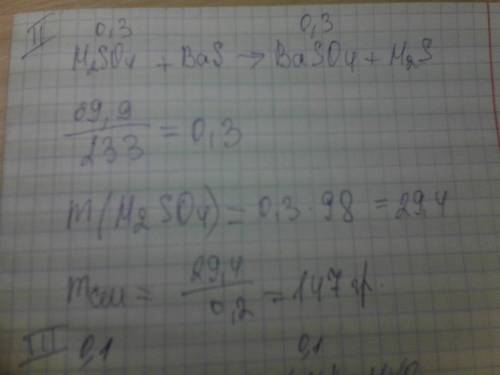 II 0,3 0,3
H2SO4 + BaS → BaSO4 + H2S
69,9 / 233 = 0,3
m(H2SO4) = 0,3 · 98 = 29,4
mсм = 29,4 / 0,2 = 147 гр.
III 0,1 0,1